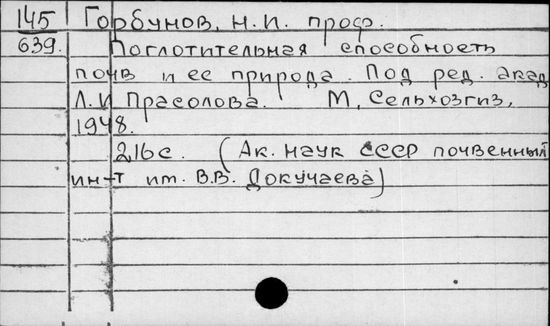 145 Горбунов, Н.И. проф.
639. Поглотительная способность
почв и ее природа. Под ред. акад.
Л.И Прасолова. М, Сельхозгиз,
1948.
216с. (Ак. наук СССР почвенный
ин-т им. В.В. Докучаева)